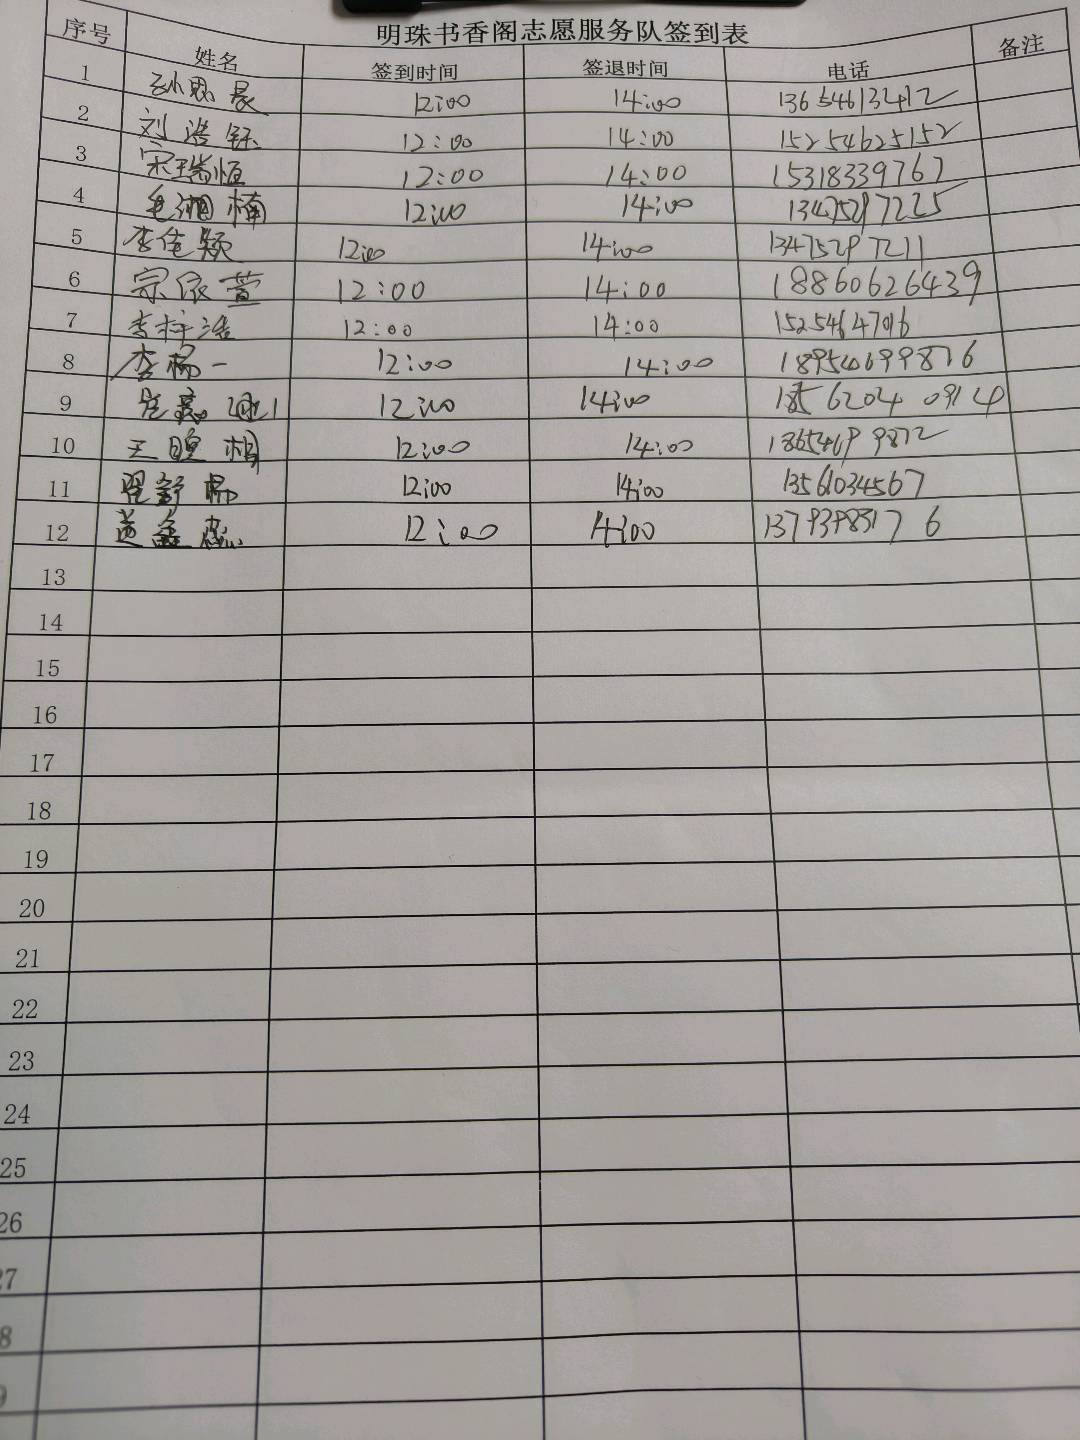 明珠书香阁志愿服务队签到表
序号 姓名 签到时间 签退时间 电话 备注
1 孙思晨 12:00 14:00 13654613412
2 刘浩钰 12:00 14:00 15254625152
3 宋瑞恒 12:00 14:00 15318339767
4 毛湘楠 12:00 14:00 13475297225
5 李佳颖 12:00 14:00 13475297211
6 宗依萱 12:00 14:00 18860626439
7 李梓浩 12:00 14:00 15254647016
8 李杨一 12:00 14:00 18954699876
9 12:00 14:00
10 王晚楫 12:00 14:00 18654699872
11 舒 12:00 14:00 13561034567
12 鑫 12:00 14:00
13
14
15
16
17
18
19
20
21
22
23
24
25
26
27
8
9